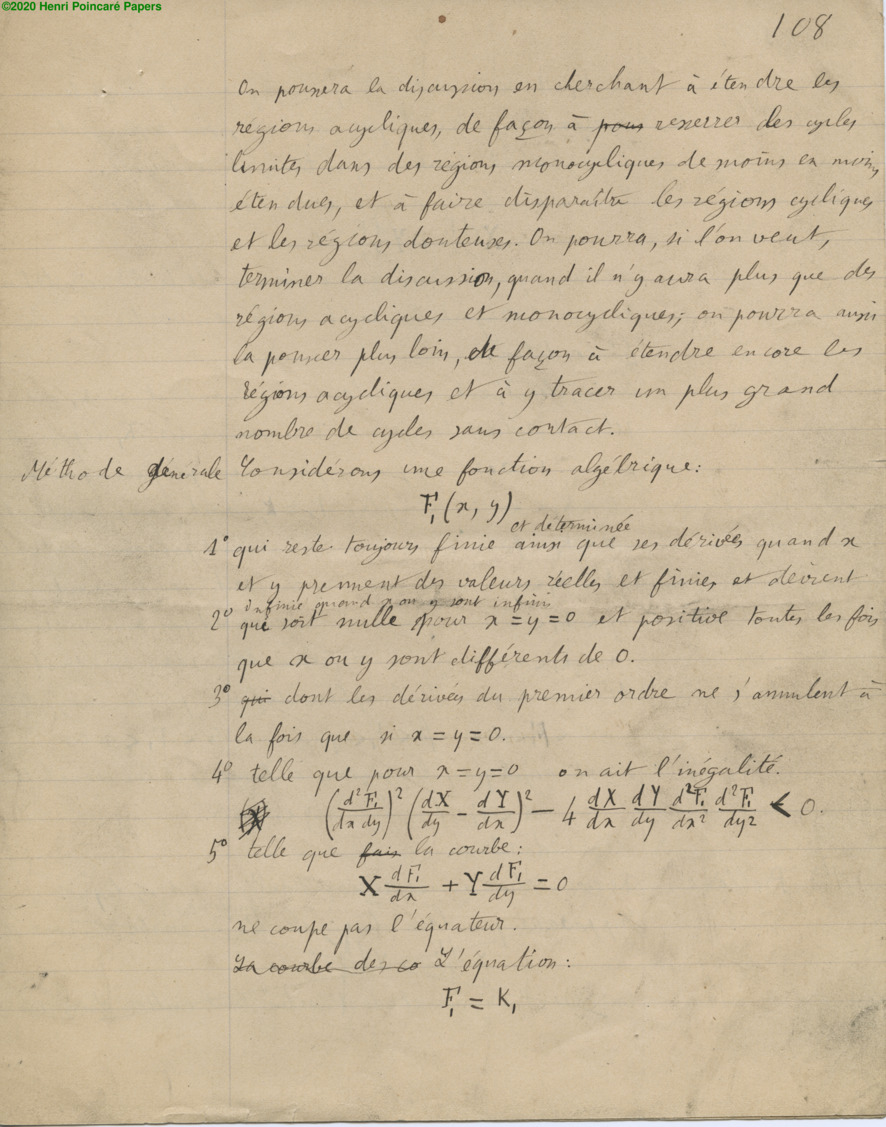 ©2020 Henri Poincaré Papers
108
On poussera la discussion en cherchant à étendre les
régions acycliques, de façon à pous resserrer des cycles
limites dans des régions monocycliques de moins en moins
étendues, et à faire disparaître les régions cycliques
et les régions douteuses. On pourra, si l'on veut,
terminer la discussion, quand il n'y aura plus que des
régions acycliques et monocycliques; on pourra aussi
la pousser plus loin, de façon à étendre encore les
régions acycliques et à y tracer un plus grand
nombre de cycles sans contact.
Méthode générale
Considérons une fonction algébrique:
F₁(x, y)
et déterminée
1° qui reste toujours finie ainsi que ses dérivées quand x
et y prennent des valeurs réelles et finies et devient
infinie quand x ou y sont infinis
2° qui soit nulle pour x = y = 0 et positive toutes les fois
que x ou y sont différents de 0.
3° qui dont les dérivées du premier ordre ne s'annulent à
la fois que si x = y = 0.
4° telle que pour x = y = 0 on ait l'inégalité.
(d²F₁/dx dy)² (dX/dy - dY/dx)² - 4 dX/dx dY/dy d²F₁/dx² d²F₁/dy² < 0.
5° telle que fais la courbe:
X dF₁/dx + Y dF₁/dy = 0
ne coupe pas l'équateur.
La courbe des co L'équation:
F₁ = K₁